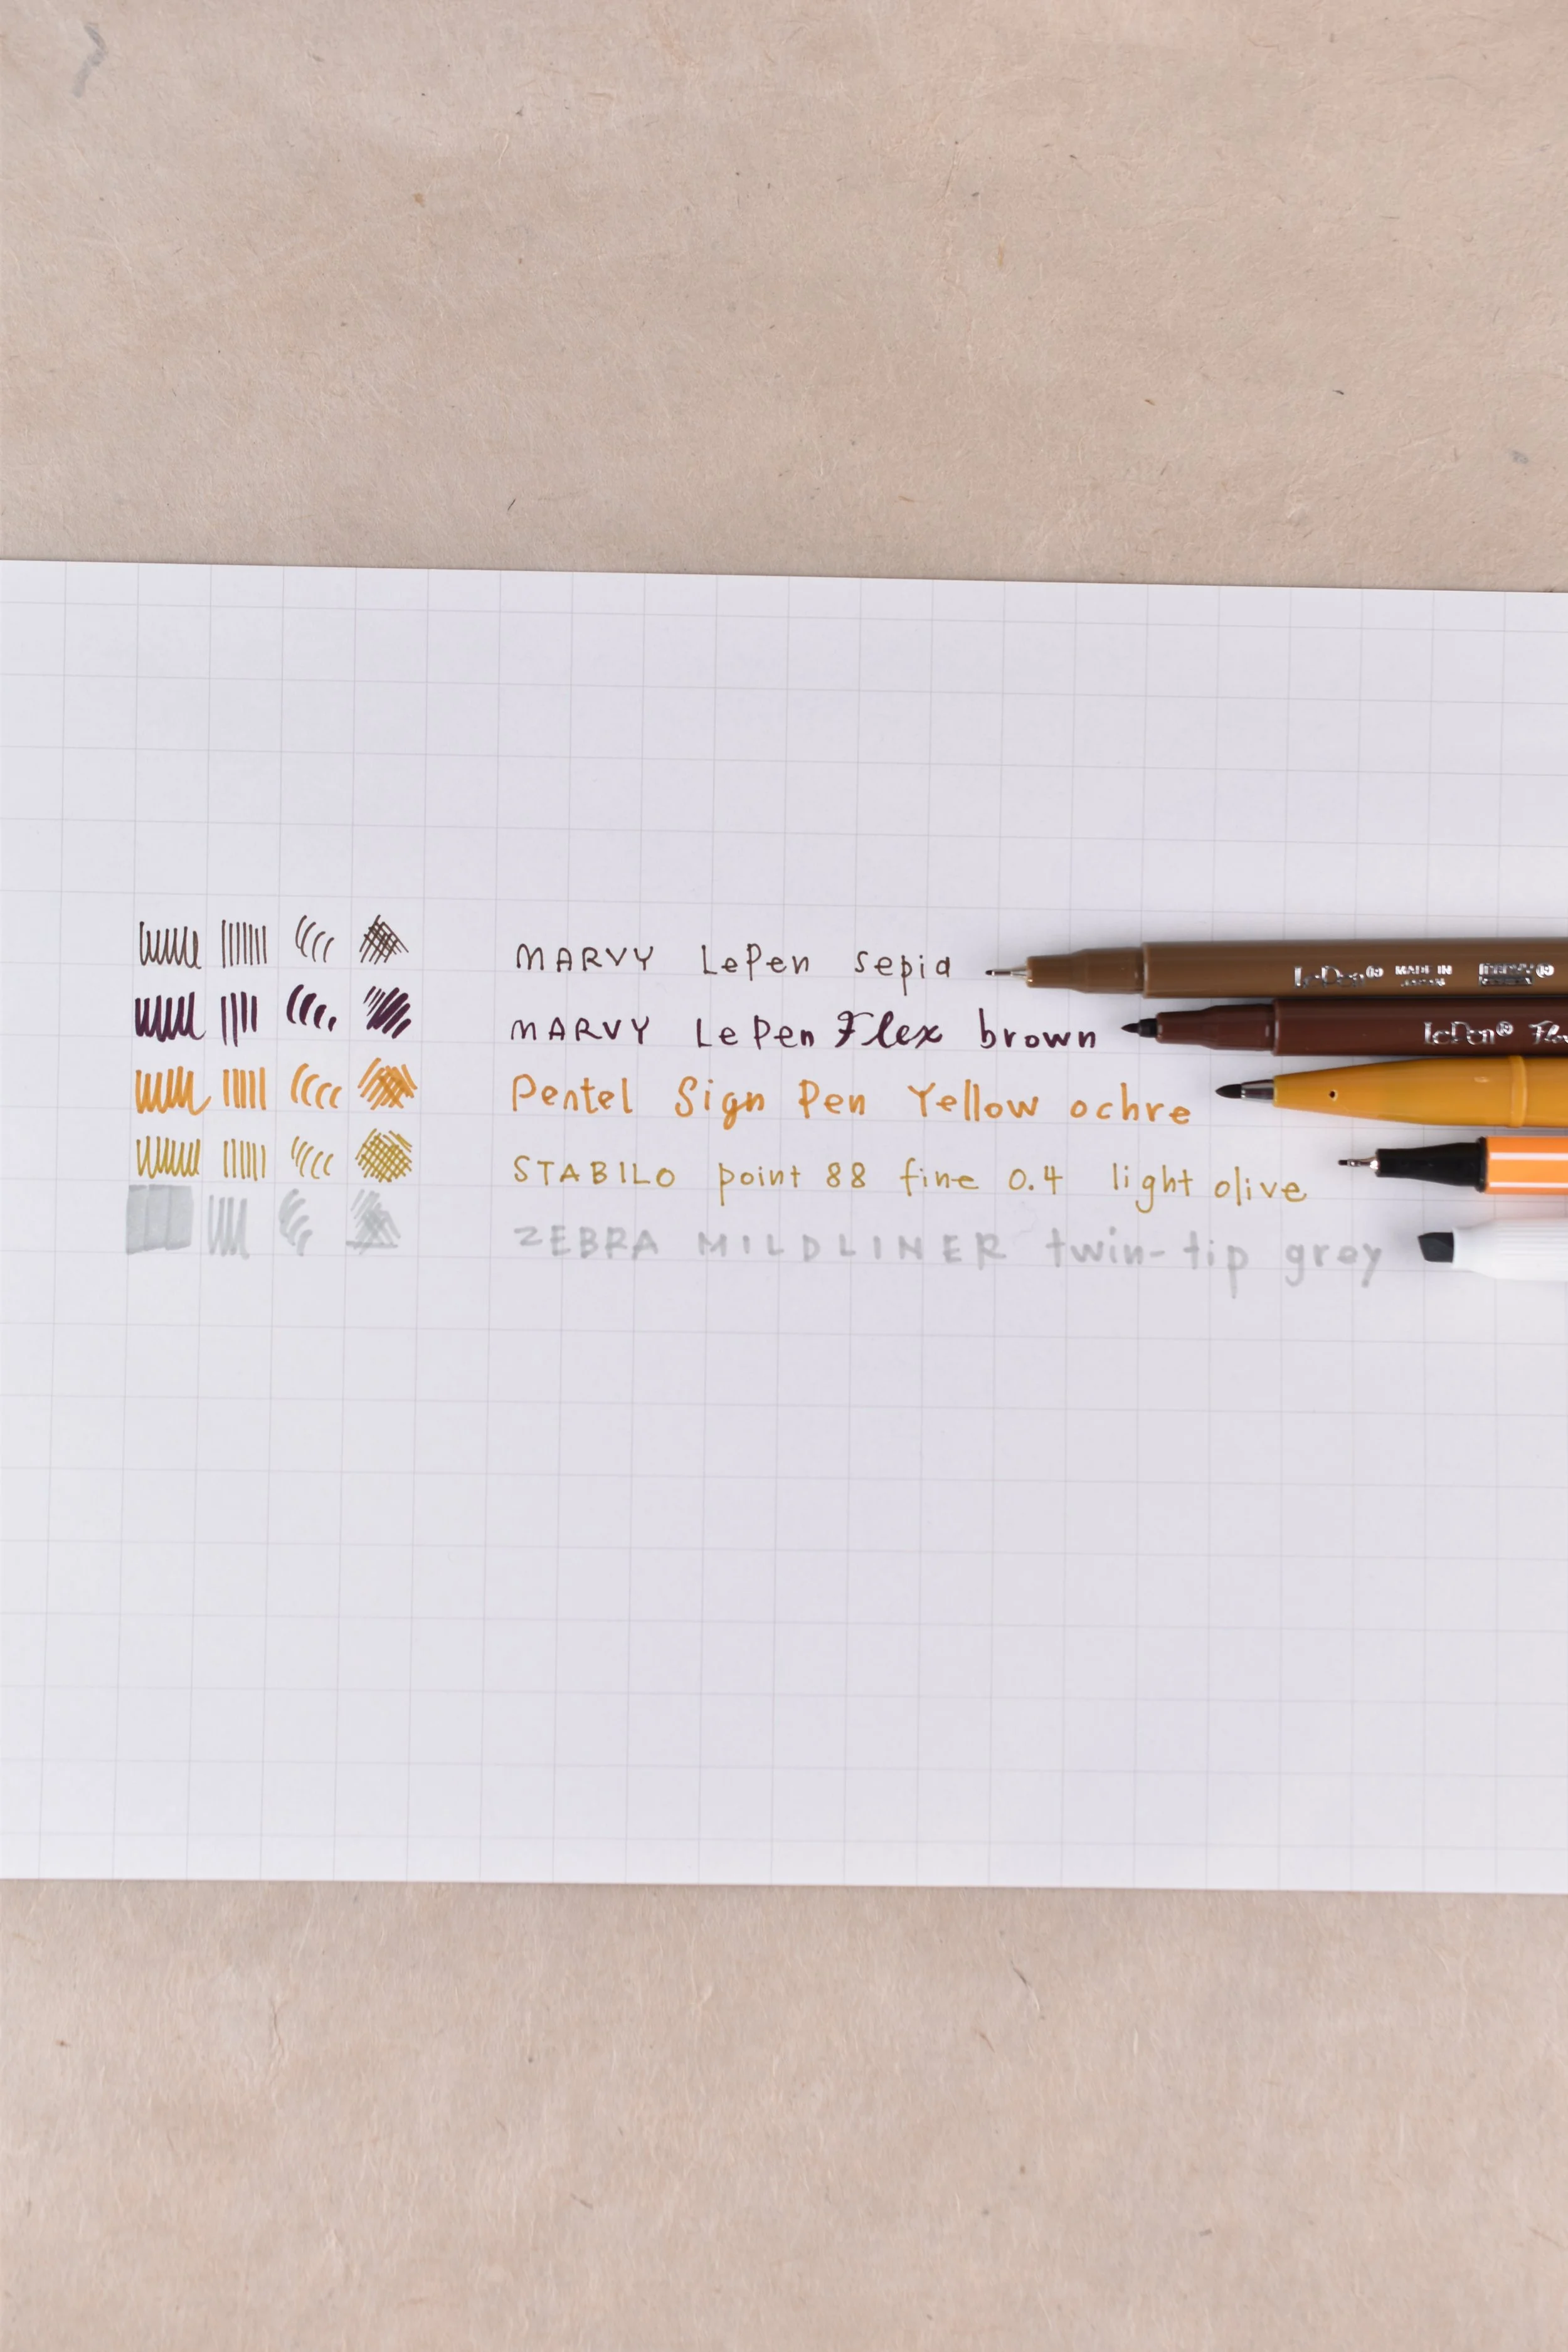 MARVY LePen sepia
LePen® MADE IN JAPAN
MARVY LePen Flex brown
LePen®
Pentel Sign Pen Yellow ochre
STABILO point 88 fine 0.4 light olive
ZEBRA MILDLINER twin-tip grey